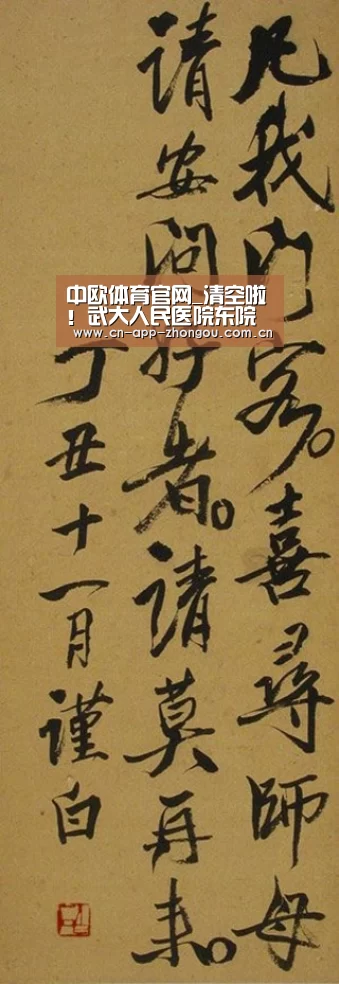 凡我門客。喜尋師母
請安問好者。請莫再来。
丁丑十一月謹白
中欧体育官网_清空啦
！武大人民医院东院
www.cn-app-zhongou.com.cn